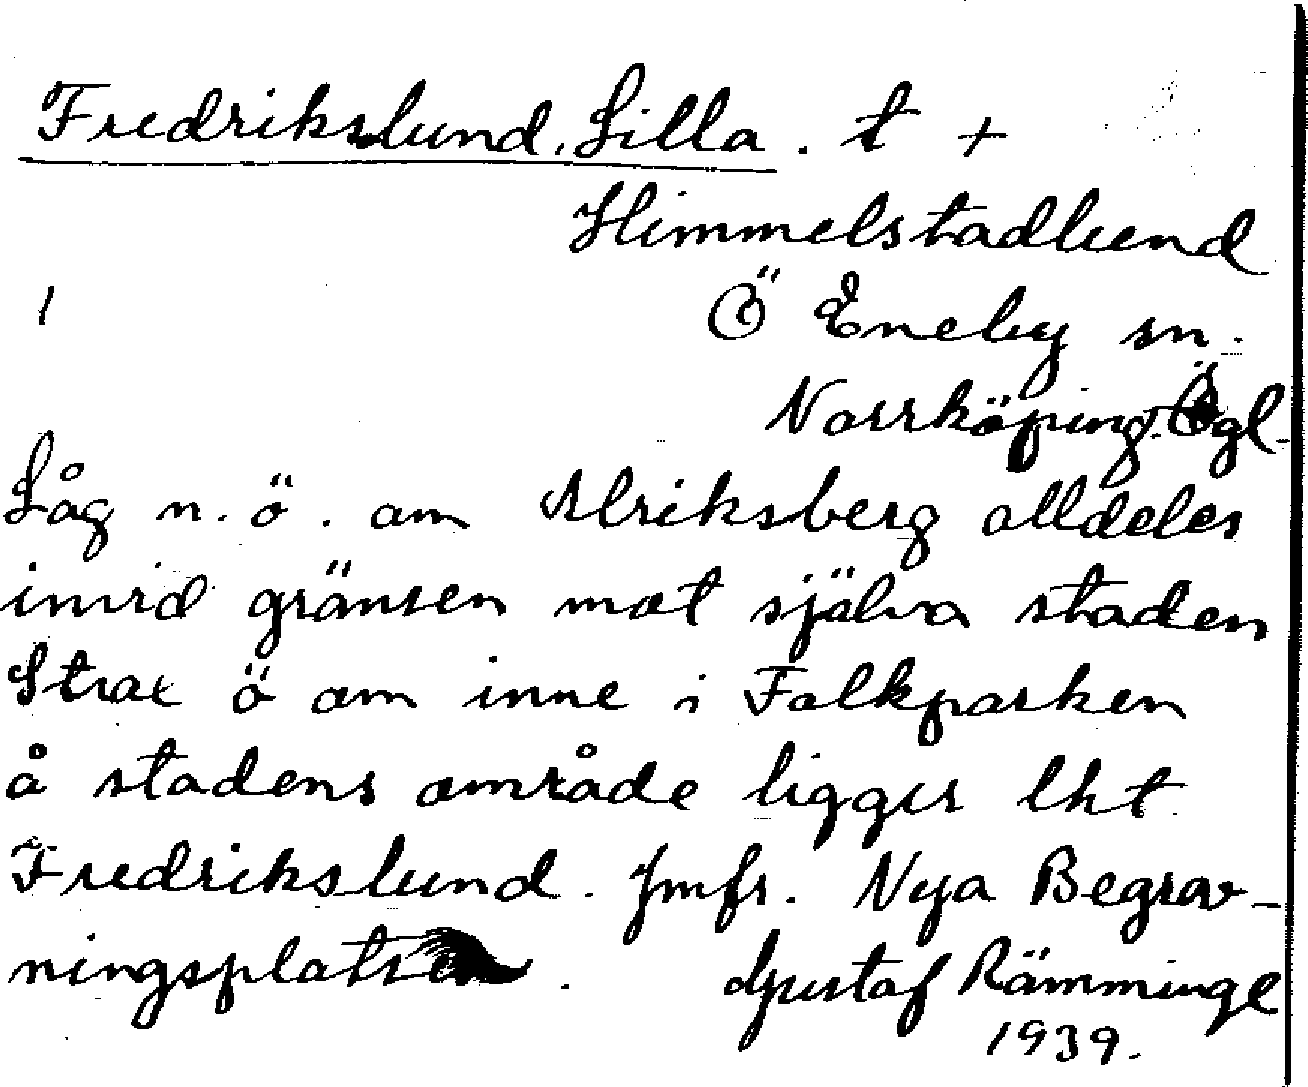 Fredrikslund, Lilla. t +
Himmelstadlund
1 Ö Eneby sn.
Norrköping. Ögl.
Låg n. ö. om Alriksberg alldeles
invid gränsen mot själva staden
Strax ö om inne i Folkparken
å stadens område ligger lht
Fredrikslund. Jmfr. Nya Begrav-
ningsplatsen. Gustaf Rämminge
1939.